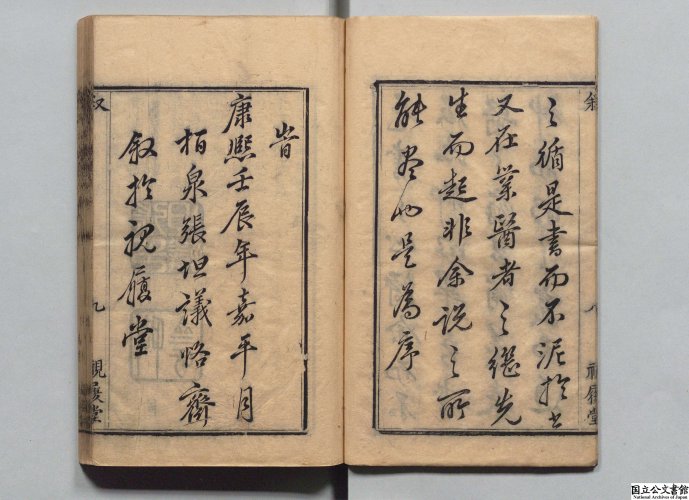 之循是書而不泥於書
又在業醫者之繼先
生而起非余説之所
能盡也是為序
旹
康熙壬辰年嘉平月
栢泉張坦議恪齋
叙於視履堂
叙
九
視履堂
国立公文書館
National Archives of Japan